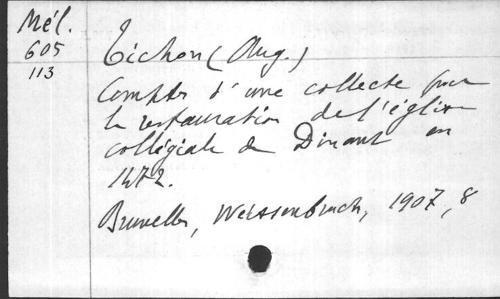 Mél.
605
113
Tichon (Aug.)
Comptes d'une collecte pour
la restauration de l'église
collégiale de Dinant en
1472.
Bruxelles, Weissenbruch, 1907, 8